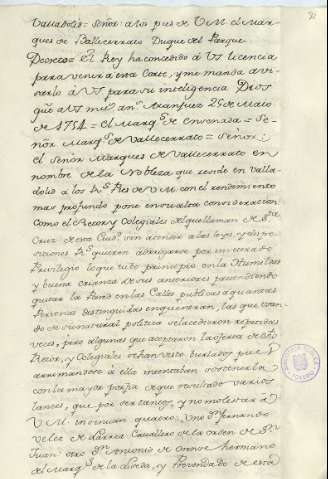 Valladolid = Señor: a los pies de V M el Mar
ques de Vallecerrato Duque del Parque
Decreto = El Rey ha concedido á VS licencia
para venir a esta Corte, y me manda avi
sarlo á VS para su inteligencia Dios
gūe a VS ms. ans. Aranjuez 25 de Maio
de 1754 = el Marqs. de ensenada = Se-
ñor Marqs. de Vallecerrato = Señor:
el Señor Marques de Vallecerrato en
nombre de la Nobleza que reside en Valla-
dolid a los Rs. Pies de V M con el rendimiento
mas profundo pone en su alta consideracion
como el Rector y Colegiales del que llaman de Sta.
Cruz de esta Ciud. sin atender a las leyes, y dispo
siciones Rs. quieren apropiarse por inveterado
Privilegio lo que tubo principio en la Humildad
y buena crianza de sus anteriores pretendiendo
quitar la Azera en las Calles publicas a quantas
Personas distinguidas encuentran, las que usan-
do de su natural politica se la cedieron repetidas
veces, pero algunas que
Rector, y Colegiales se han visto burlados pues
arrimandose á ella intentaban sostenerla
con la mayor porfia de que resultado varios
lances, que por ser tantos, y no molestar á
V M. insinuan quatro: Uno Dn. Fernando
Velez de Larrea Cavallero de la orden de Sn.
Juan: otro Dn. Antonio de hermano
del Marqs. de la y de esta